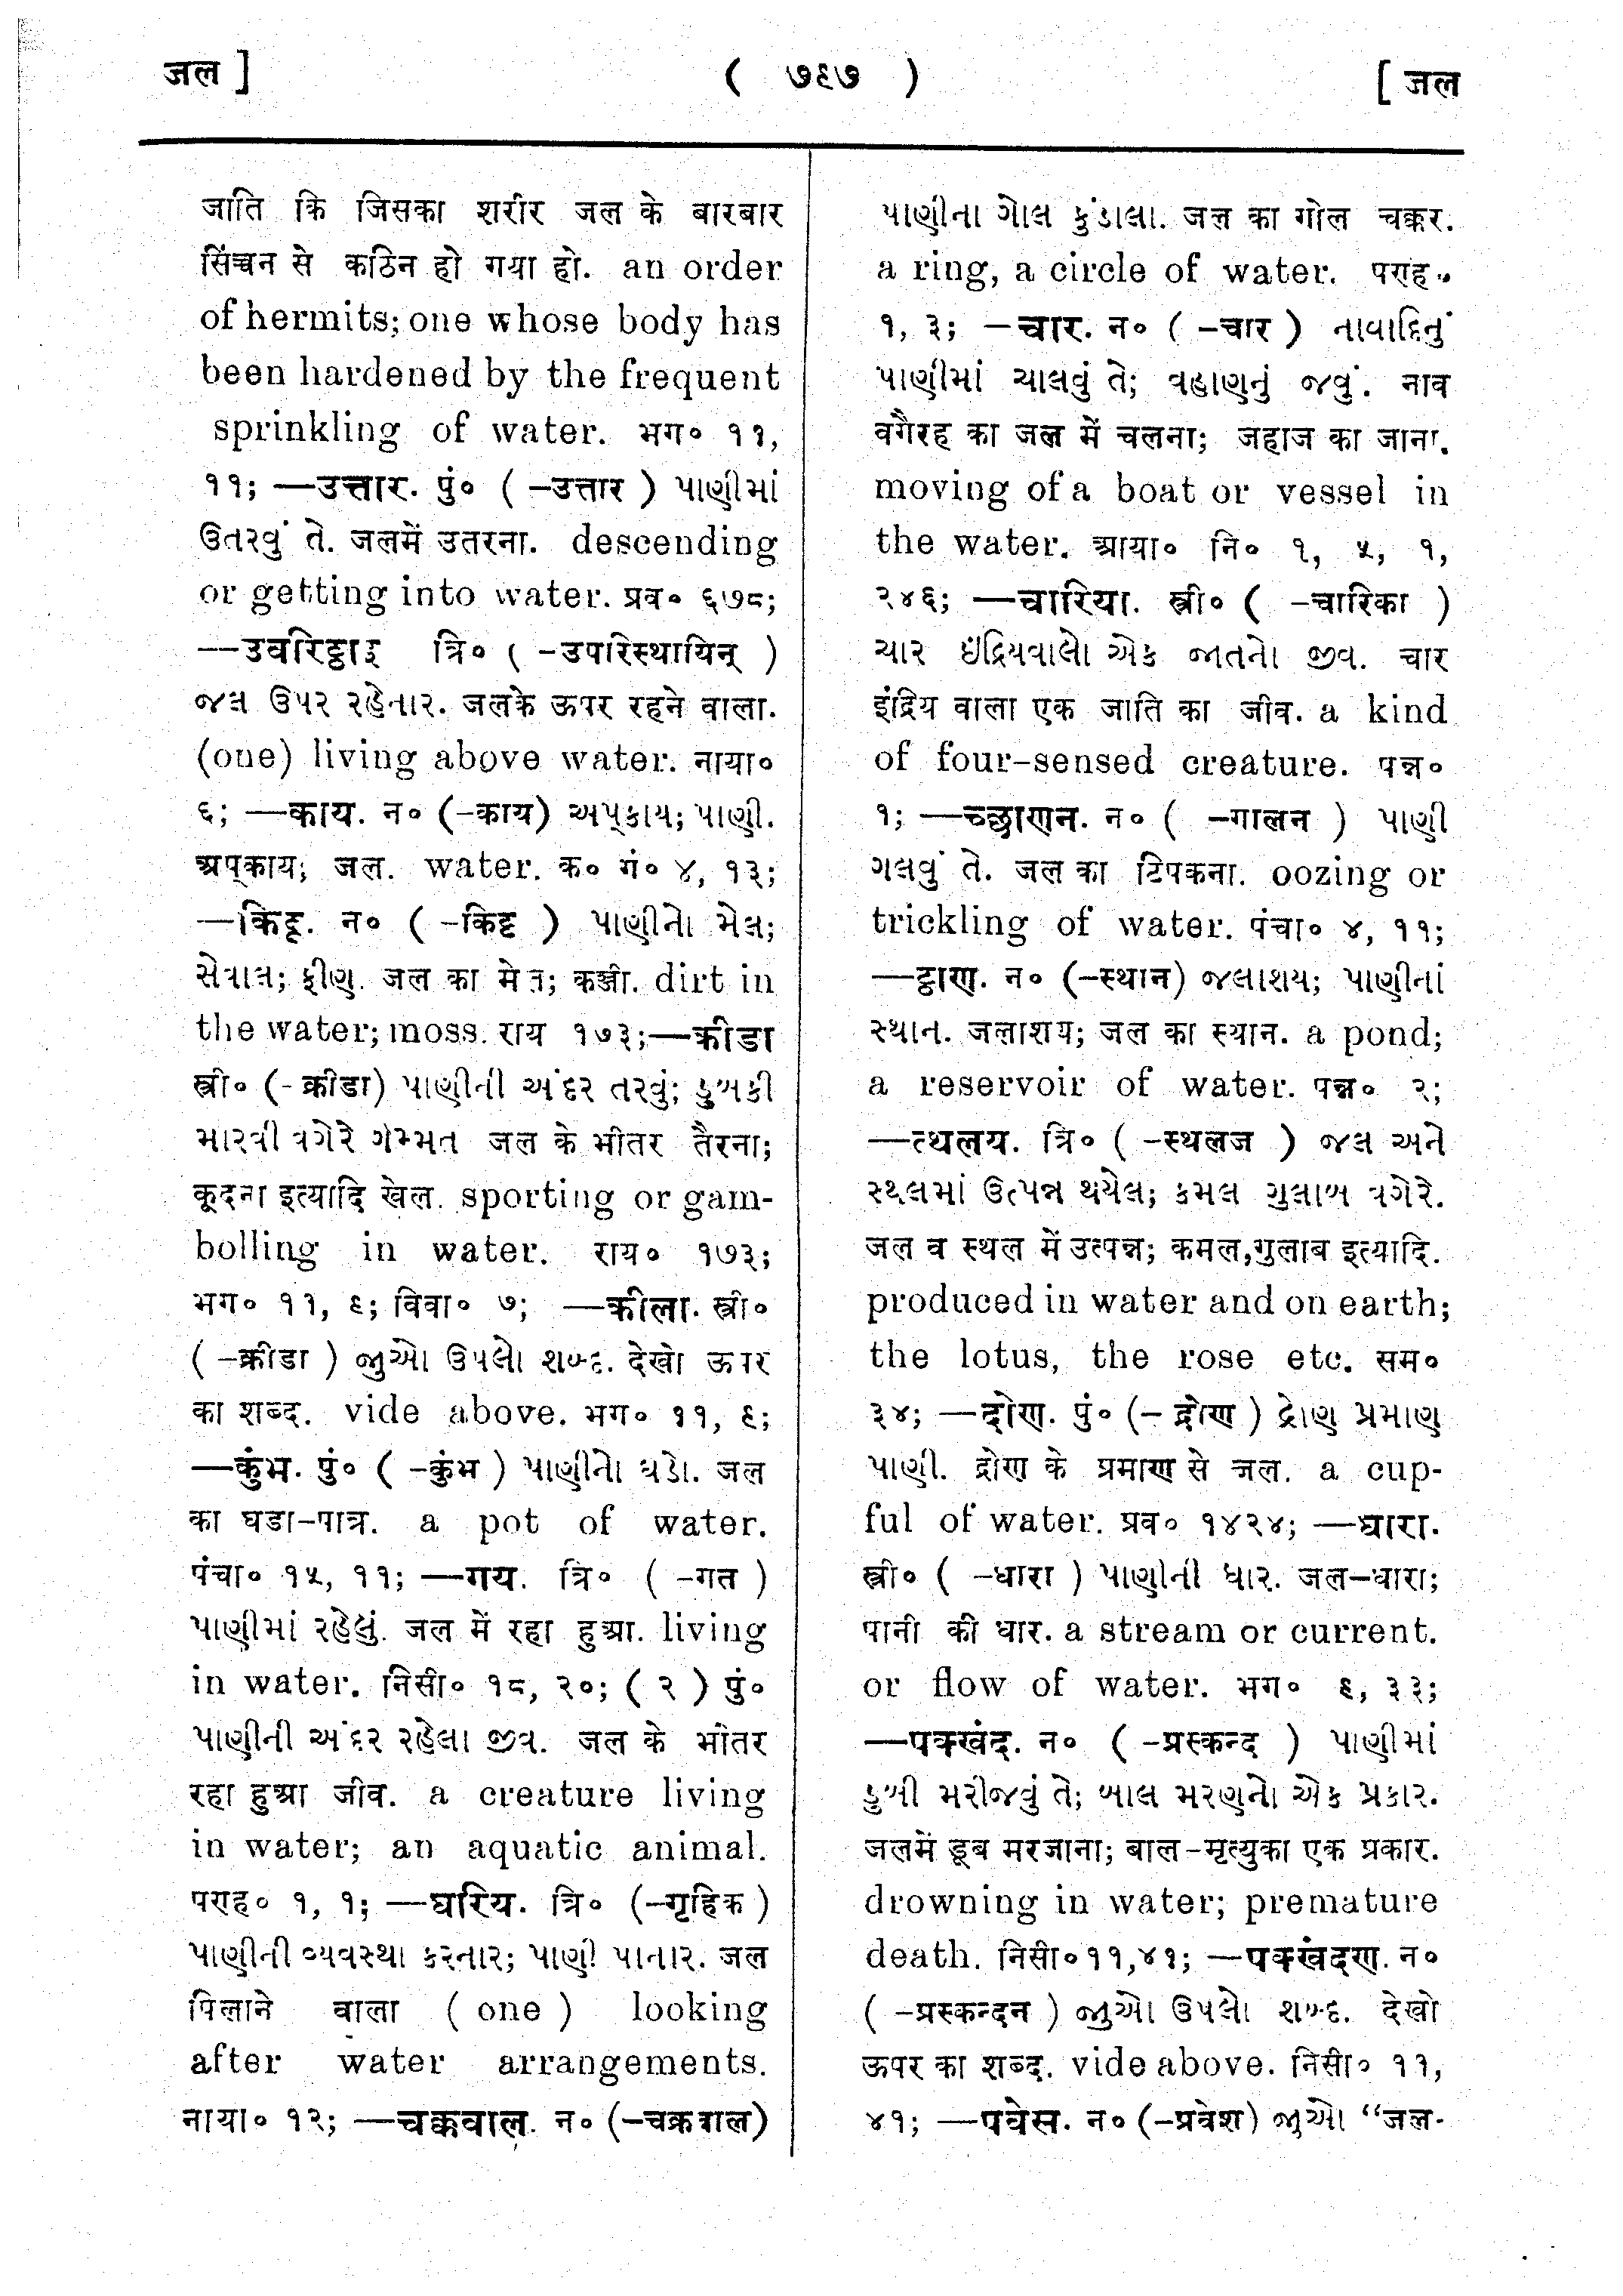 जल ]
( ७९७ )
[ जल
जाति कि जिसका शरीर जल के बारबार
सिंचन से कठिन हो गया हो. an order
of hermits; one whose body has
been hardened by the frequent
sprinkling of water. भग० ११,
११; —उत्तार. पुं० ( -उत्तार ) પાણીમાં
ઉતરવું તે. जलमें उतरना. descending
or getting into water. प्रव० ६७८;
—उवरिट्ठाइ त्रि० ( -उपरिस्थायिन् )
જલ ઉપર રહેનાર. जलके ऊपर रहने वाला.
(one) living above water. नाया०
६; —काय. न० (-काय) અપ્કાય; પાણી.
अप्काय; जल. water. क० गं० ४, १३;
—किट्ट. न० ( -किट्ट ) પાણીનો મેલ;
સેવાલ; ફીણ. जल का मेल; कञ्जी. dirt in
the water; moss. राय १७३;—कीडा
स्त्री० (-क्रीडा) પાણીની અંદર તરવું; ડુબકી
મારવી વગેરે ગમ્મત जल के भीतर तैरना;
कूदना इत्यादि खेल. sporting or gam-
bolling in water. राय० १७३;
भग० ११, ६; विवा० ७; —कीला. स्त्री०
( -क्रीडा ) જુઓ ઉપલો શબ્દ. देखो ऊपर
का शब्द. vide above. भग० ११, ६;
—कुंभ. पुं० ( -कुंभ ) પાણીનો ઘડો. जल
का घडा-पात्र. a pot of water.
पंचा० १५, ११; —गय. त्रि० ( -गत )
પાણીમાં રહેલું. जल में रहा हुआ. living
in water. निसी० १८, २०; ( २ ) पुं०
પાણીની અંદર રહેલા જીવ. जल के भीतर
रहा हुआ जीव. a creature living
in water; an aquatic animal.
पराह० १, १; —घरिय. त्रि० (-गृहिक )
પાણીની વ્યવસ્થા કરનાર; પાણી પાનાર. जल
पिलाने वाला ( one ) looking
after water arrangements.
नाया० १२; —चक्कवाल. न० (-चक्रवाल)
પાણીના ગોલ કુંડાલા. जल का गोल चक्कर.
a ring, a circle of water. पराह०
१, ३; —चार. न० ( -चार ) નાવાદિનું
પાણીમાં ચાલવું તે; વહાણનું જવું. नाव
वगैरह का जल में चलना; जहाज का जाना.
moving of a boat or vessel in
the water. आया० नि० १, ५, १,
२४६; —चारिया. स्त्री० ( -चारिका )
ચાર ઇંદ્રિયવાલો એક જાતનો જીવ. चार
इंद्रिय वाला एक जाति का जीव. a kind
of four-sensed creature. पन्न०
१; —च्छाणन. न० ( -गालन ) પાણી
ગલવું તે. जल का टिपकना. oozing or
trickling of water. पंचा० ४, ११;
—ट्ठाण. न० (-स्थान) જલાશય; પાણીનાં
સ્થાન. जलाशय; जल का स्थान. a pond;
a reservoir of water. पन्न० २;
—त्थलय. त्रि० ( -स्थलज ) જલ અને
સ્થલમાં ઉત્પન્ન થયેલ; કમલ ગુલાબ વગેરે.
जल व स्थल में उत्पन्न; कमल,गुलाब इत्यादि.
produced in water and on earth;
the lotus, the rose etc. सम०
३४; —दोण. पुं० (- द्रोण ) દ્રોણ પ્રમાણ
પાણી. द्रोण के प्रमाण से जल. a cup-
ful of water. प्रव० १४२४; —धारा.
स्त्री० ( -धारा ) પાણીની ધાર. जल-धारा;
पानी की धार. a stream or current.
or flow of water. भग० ६, ३३;
—पक्खंद. न० ( -प्रस्कन्द ) પાણીમાં
ડુબી મરીજવું તે; બાલ મરણનો એક પ્રકાર.
जलमें डूब मरजाना; बाल-मृत्युका एक प्रकार.
drowning in water; premature
death. निसी०११,४१; —पक्खंदण. न०
( -प्रस्कन्दन ) જુઓ ઉપલો શબ્દ. देखो
ऊपर का शब्द. vide above. निसी० ११,
४१; —पवेस. न० (-प्रवेश) જુઓ “जल-